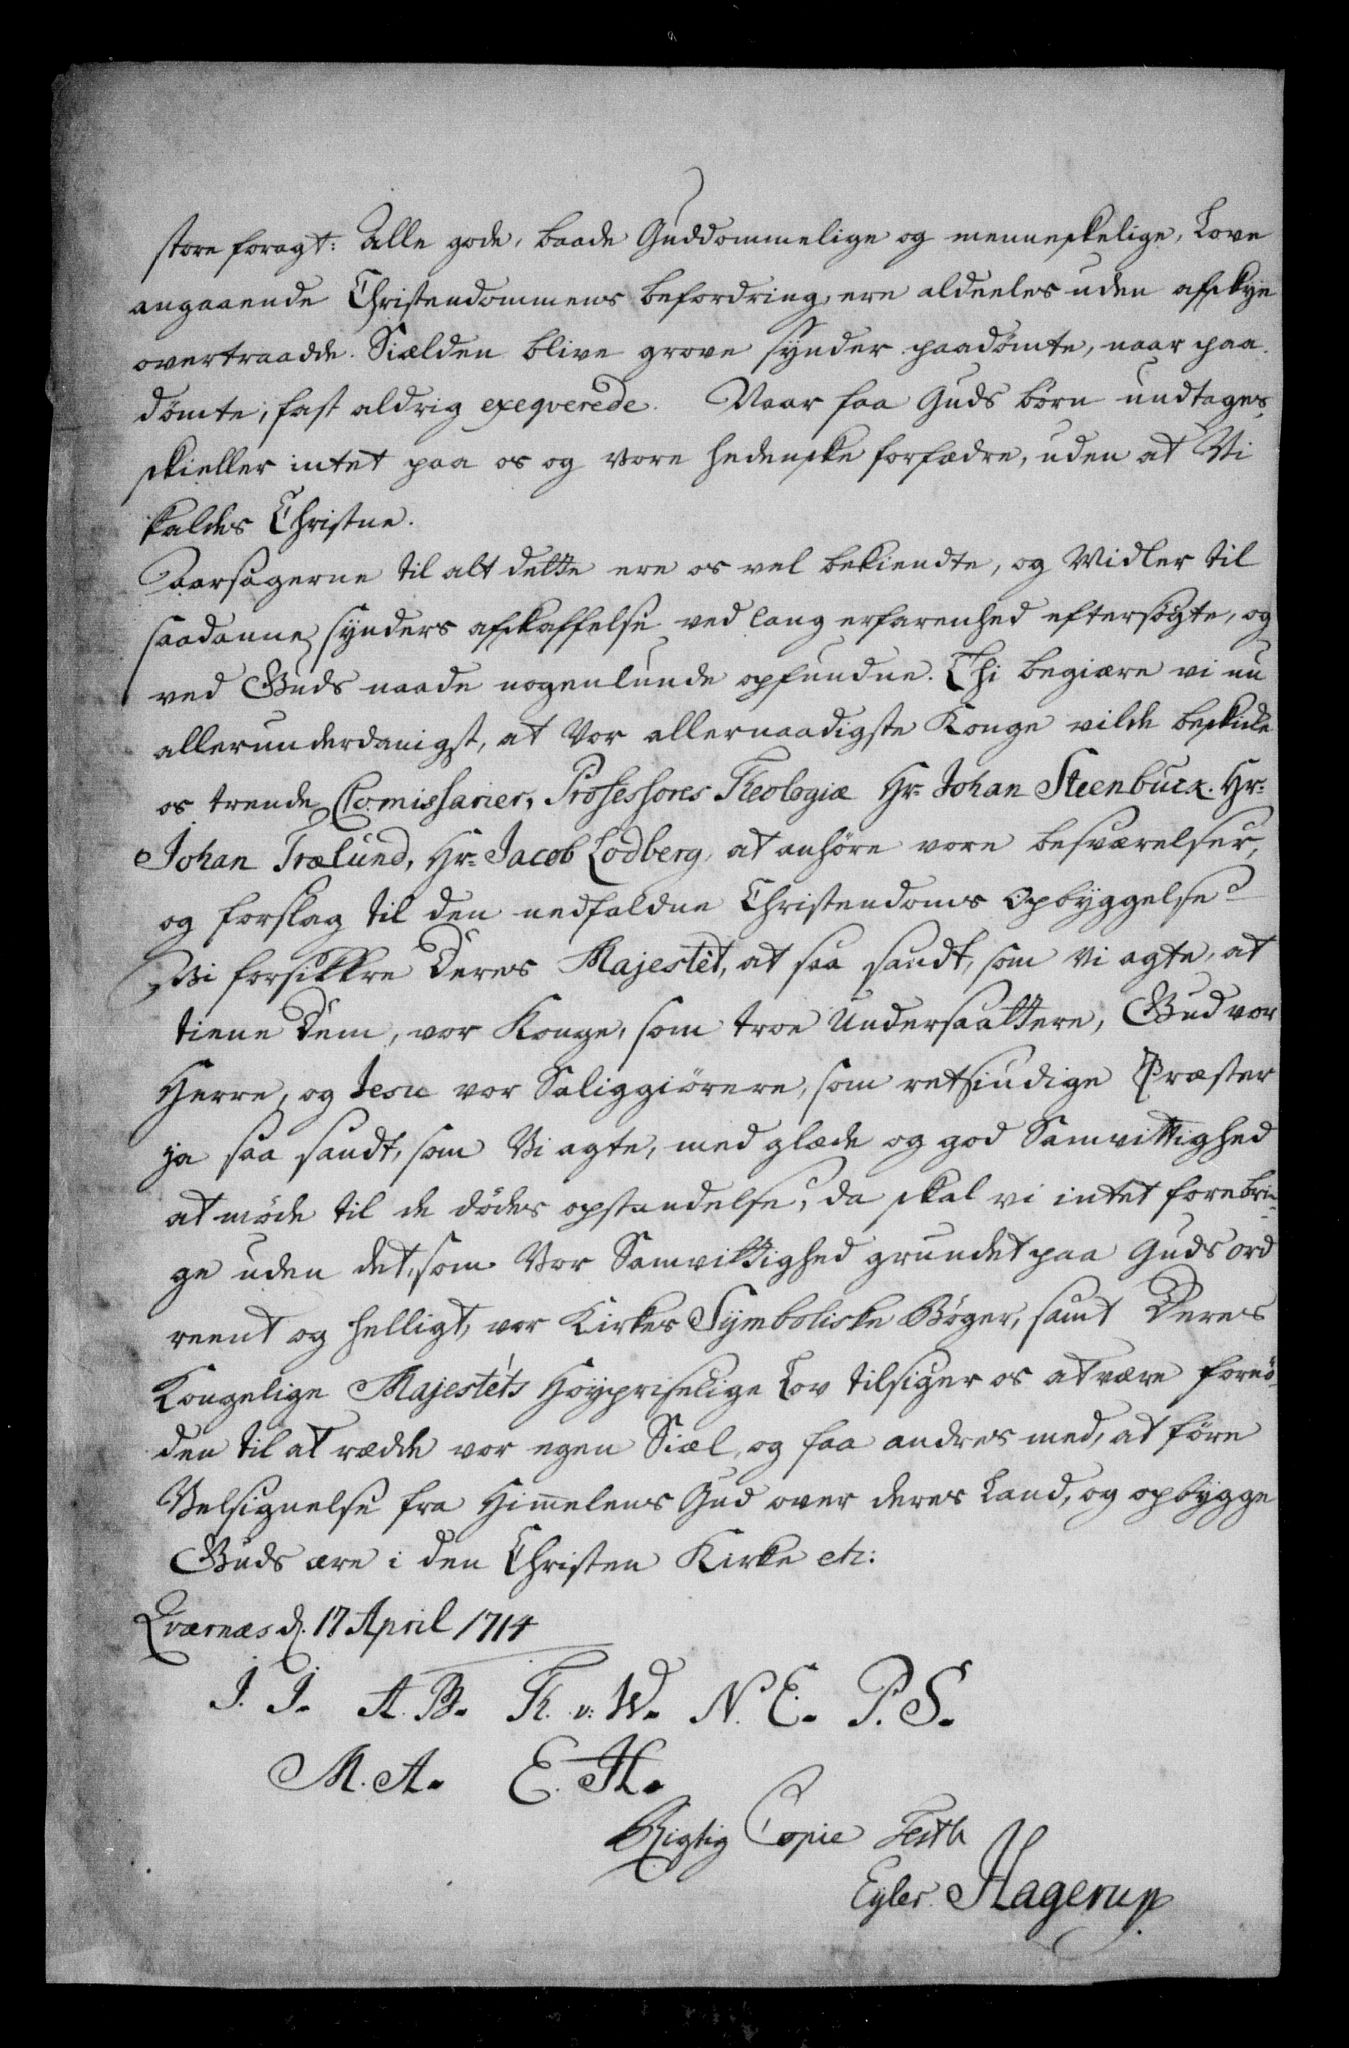 store foragt: Alle gode, baade Guddommelige og menneskelige, Love
angaaende Christendommens befordring, ere aldeeles uden afskye
overtraadde. Siælden blive grove synder paadømte, naar paa
dømte, fast aldrig exeqverede. Naar faa Guds børn undtages,
skieller intet paa os og vore hedenske forfædre, uden at Vi
kaldes Christne.
Aarsagerne til alt dette ere os vel bekiendte, og Midler til
saadanne synders afskaffelse ved lang erfarenhed eftersøgte, og
ved Guds naade nogenlunde opfundne. Thi begiære vi nu
allerunderdanigst, at Vor allernaadigste Konge vilde beskikke
os trende Com̅issarier, Professores Theologiæ Hr. Johan Steenbuck. Hr:
Johan Trælund, Hr: Jacob Lodberg, at anhøre vore besværelser,
og forslag til den nedfaldne Christendoms Opbyggelse
Vi forsikkre Deres Majestêt, at saa sandt, som Vi agte, at
tiene Dem, vor Konge, som troe Undersaattere, Gud vor
Herre, og Jesu vor Saliggiørere, som retsindige Præster
ja saa sandt, som Vi agte, med glæde og god Samvittighed
at møde til de dødes opstandelse, da skal vi intet forebrin-
ge uden det, som Vor Samvittighed grundet paa Guds ord
reent og helligt, vor Kirkes Symboliske Bøger, samt Deres
Kongelige Majestéts Høypriselige Lov tilsiger os at være fornö-
den til at rædde vor egen Siæl, og saa andres med, at føre
Velsignelse fra Him̅elens Gud over deres Land, og opbygge
Guds ære i den Christen Kirke etc:
Qværnæs d. 17 April 1714
J. J. A. B. Th. v: W. N. E. P. S.
M. A. E. H.
Rigtig Copie Test:
Eyler Hagerup